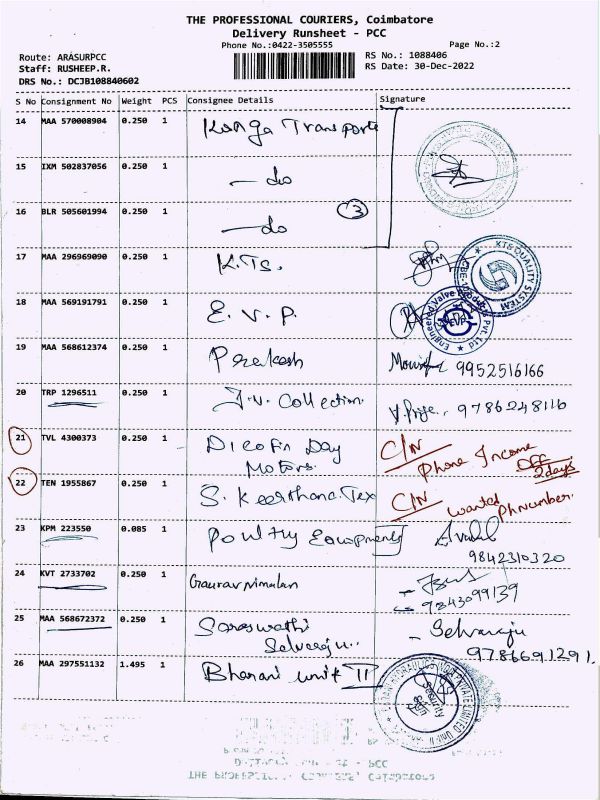 THE PROFESSIONAL COURIERS, Coimbatore
Delivery Runsheet - PCC
Phone No.:0422-3505555
Page No.:2
Route: ARASURPCC
RS No.: 1088406
Staff: RUSHEEP.R.
RS Date: 30-Dec-2022
DRS No.: DCJB108840602
S No Consignment No Weight PCS Consignee Details Signature
14 MAA 570008904 0.250 1 Kanga Transports
15 IXM 502837056 0.250 1 - do
16 BLR 505601994 0.250 1 - do 3
17 MAA 296969090 0.250 1 K.T.S.
KTS QUALITY SYSTEM
18 MAA 569191791 0.250 1 E. V. P.
Engineered Valve Products Pvt. Ltd
EVP
19 MAA 568612374 0.250 1 Prakash 9952516166
20 TRP 1296511 0.250 1 J.V. Collection. V.Priya. 9786248116
21 TVL 4300373 0.250 1 Day C/N
Motors. Phone Income OFF
2days
22 TEN 1955867 0.250 1 S. Keerthana Tex C/N wanted Ph number.
23 KPM 223550 0.085 1 Poultry Equipments
9842310320
24 KVT 2733702 0.250 1 Gaurav nimalan
9843099139
25 MAA 568672372 0.250 1 Saraswathi - Selvaraju
Selvaraju. 9786691291.
26 MAA 297551132 1.495 1 Bharani unit II
Security